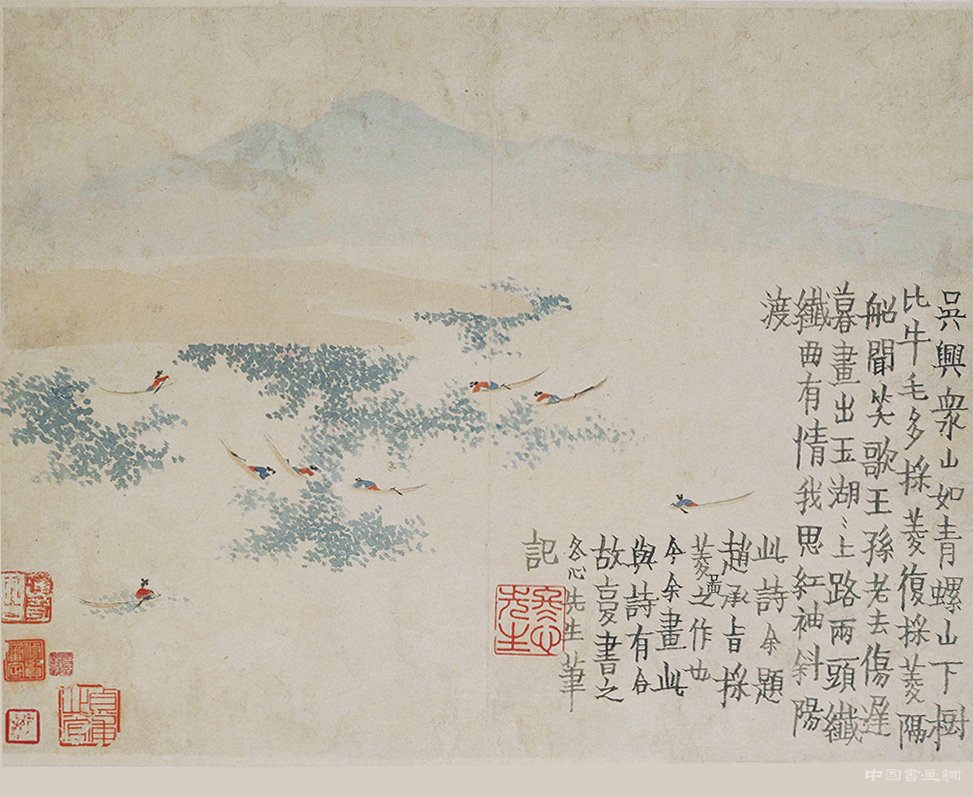 吳興眾山如青螺山下樹
比牛毛多採菱復採菱隔
船聞笑歌王孫老去傷遲
暮畫出玉湖〻上路兩頭纖
纖曲有情我思紅袖斜陽
渡
此詩余題
趙承旨採
菱畫之作也
今余畫此
與詩有合
故書之
冬心先生筆
記
冬心先生
中国書画網